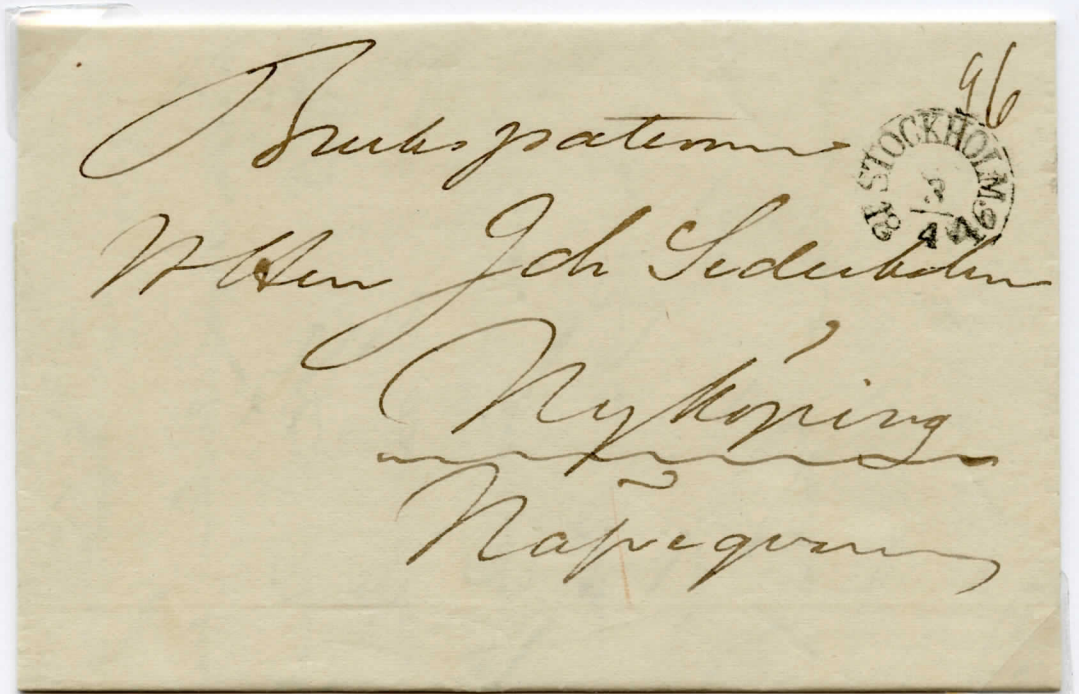 96
Brukspatronen
STOCKHOLM
4
W Herr Joh Sederholm
Nyköping
Näfveqvarn